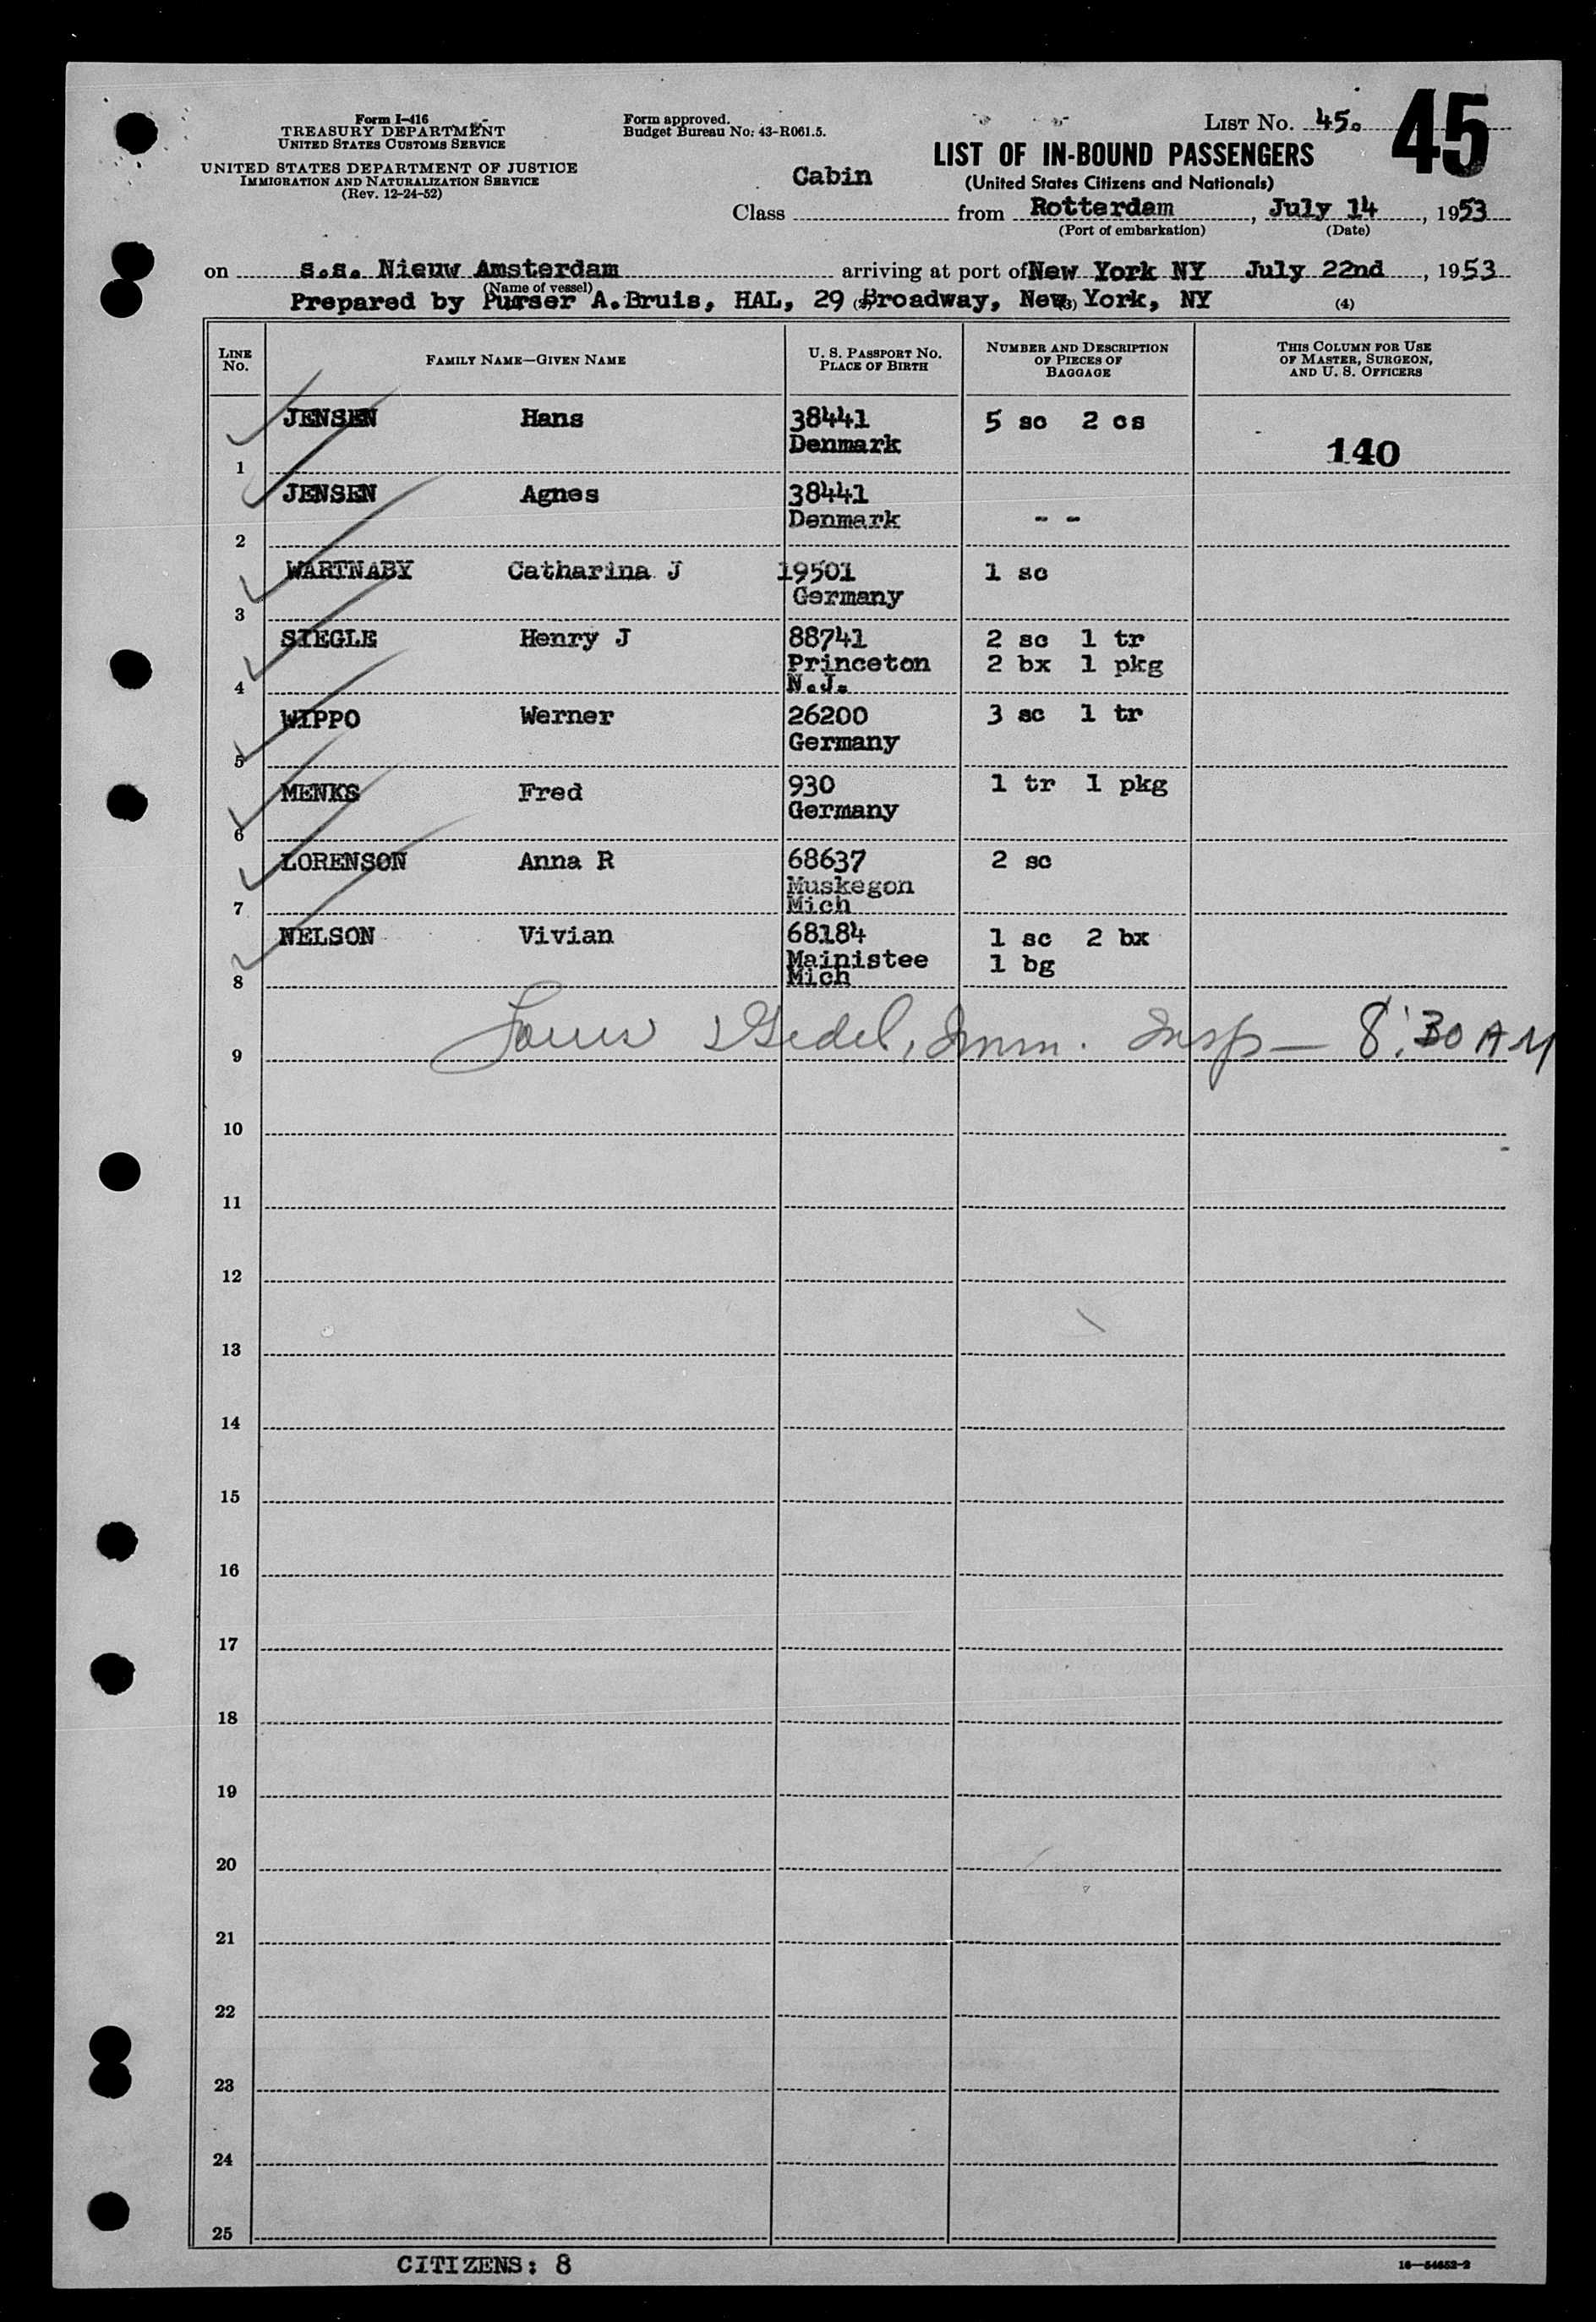 Form I-416
TREASURY DEPARTMENT
UNITED STATES CUSTOMS SERVICE
UNITED STATES DEPARTMENT OF JUSTICE
IMMIGRATION AND NATURALIZATION SERVICE
(Rev. 12-24-52)
Form approved.
Budget Bureau No. 43-R061.5.
LIST No. 45.
45
LIST OF IN-BOUND PASSENGERS
(United States Citizens and Nationals)
Class Cabin from Rotterdam, July 14, 1953
(Port of embarkation) (Date)
on s.s. Nieuw Amsterdam arriving at port of New York NY July 22nd, 1953
(Name of vessel)
Prepared by Purser A.Bruis, HAL, 29 Broadway, New York, NY
(3) (4)
LINE No. FAMILY NAME—GIVEN NAME U. S. PASSPORT No. PLACE OF BIRTH NUMBER AND DESCRIPTION OF PIECES OF BAGGAGE THIS COLUMN FOR USE OF MASTER, SURGEON, AND U. S. OFFICERS
JENSEN Hans 38441 5 sc 2 cs
Denmark
1 140
JENSEN Agnes 38441
Denmark - -
2
WARTNABY Catharina J 19501 1 sc
Germany
3
SIEGLE Henry J 88741 2 sc 1 tr
Princeton 2 bx 1 pkg
4 N.J.
WIPPO Werner 26200 3 sc 1 tr
Germany
5
MENKS Fred 930 1 tr 1 pkg
Germany
6
LORENSON Anna R 68637 2 sc
Muskegon
7 Mich
NELSON Vivian 68184 1 sc 2 bx
Mainistee 1 bg
8 Mich
9 Imm. Insp — 8:30 AM
10
11
12
13
14
15
16
17
18
19
20
21
22
23
24
25
CITIZENS: 8
16—54652-2